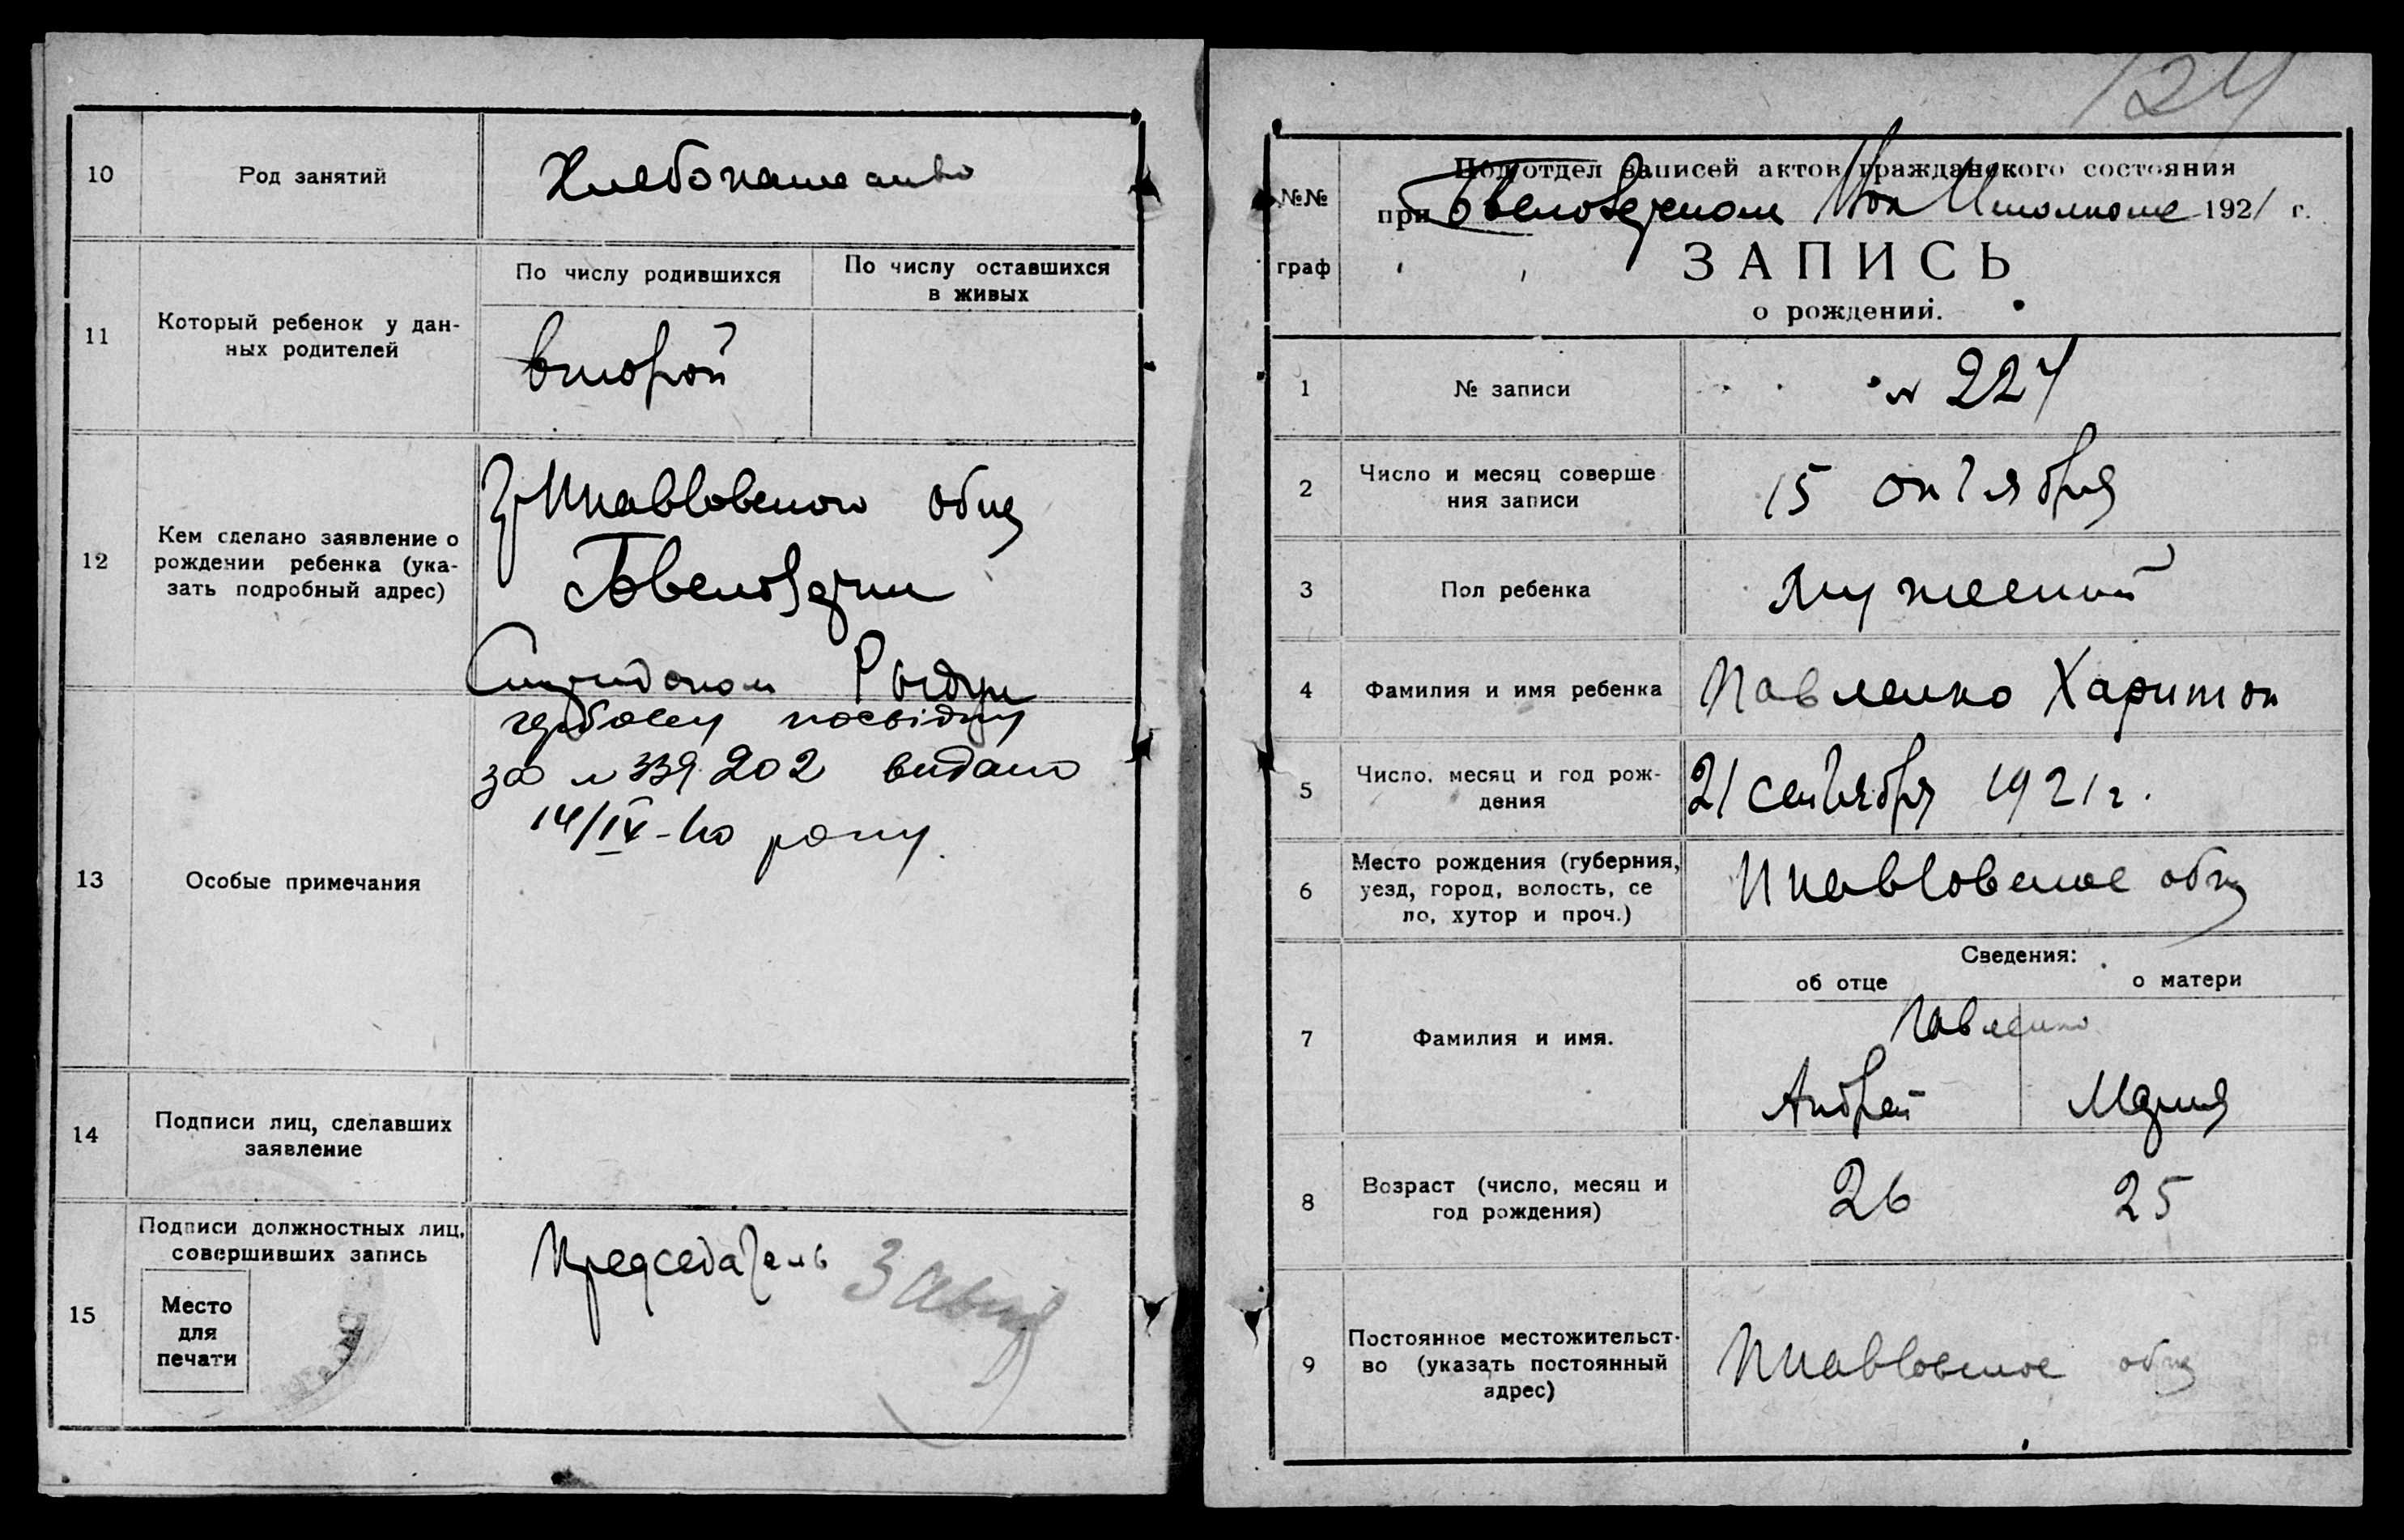 10
Род занятий
Хлебопашество
11
Который ребенок у дан-
ных родителей
По числу родившихся
По числу оставшихся
в живых
второй
12
Кем сделано заявление о
рождении ребенка (ука-
зать подробный адрес)
общ
Спиридоном
13
Особые примечания
посвідку
за № 339202 видано
14/IV-40 року
14
Подписи лиц, сделавших
заявление
15
Подписи должностных лиц,
совершивших запись
Место
для
печати
Председатель
124
№№
граф
Подотдел записей актов гражданского состояния
при 1921 г.
ЗАПИСЬ
о рождении.
1
№ записи
№ 224
2
Число и месяц соверше
ния записи
15 октября
3
Пол ребенка
мужеский
4
Фамилия и имя ребенка
Павленко Харитон
5
Число, месяц и год рож-
дения
21 сентября 1921 г.
6
Место рождения (губерния,
уезд, город, волость, се
ло, хутор и проч.)
общ
7
Фамилия и имя.
Сведения:
об отце
о матери
Павленко
Андрей
Мария
8
Возраст (число, месяц и
год рождения)
26
25
9
Постоянное местожительст-
во (указать постоянный
адрес)
общ